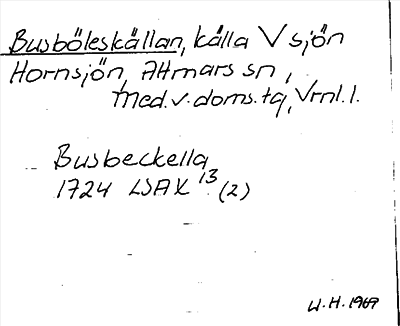 Busböleskällan, källa V sjön
Hornsjön, Attmars sn,
Med.v.doms.tg, Vrnl.l.
Busbeckella
1724 LSAX 13 (2)
W.H. 1969